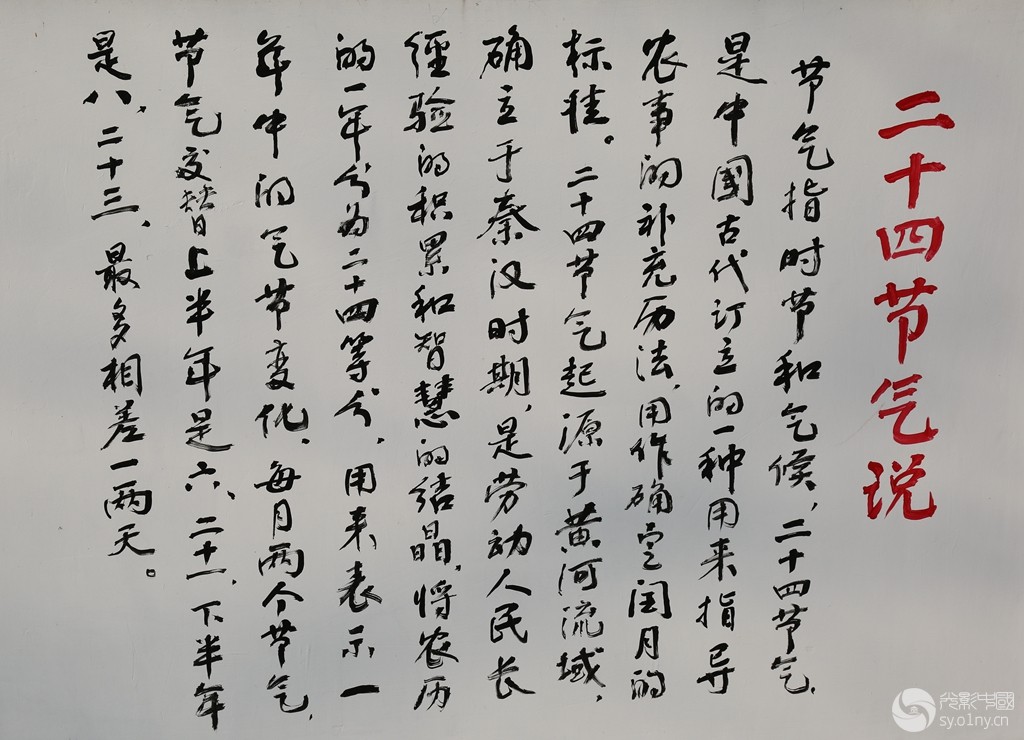 二十四节气说
节气指时节和气候，二十四节气，
是中國古代订立的一种用来指导
农事的补充历法，用作确定闰月的
标准。二十四节气起源于黄河流域，
确立于秦汉时期，是劳动人民长
經验的积累和智慧的结晶，将农历
的一年分为二十四等分，用来表示一
年中的气节变化，每月两个节气，
节气交替上半年是六、二十一，下半年
是八、二十三，最多相差一两天。
光影中國
sy.o1ny.cn